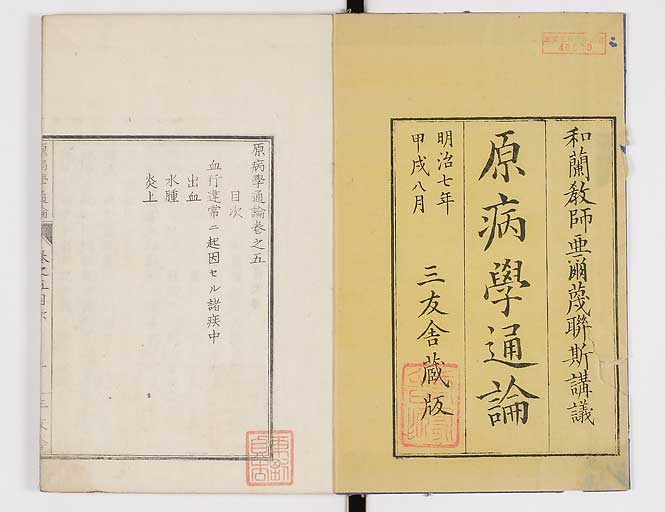 和蘭教師亜爾蔑聯斯講議
原病學通論
明治七年
甲戌八月
三友舎蔵版
原病學通論巻之五
目次
血行違常ニ起因セル諸疾中
出血
水腫
炎上